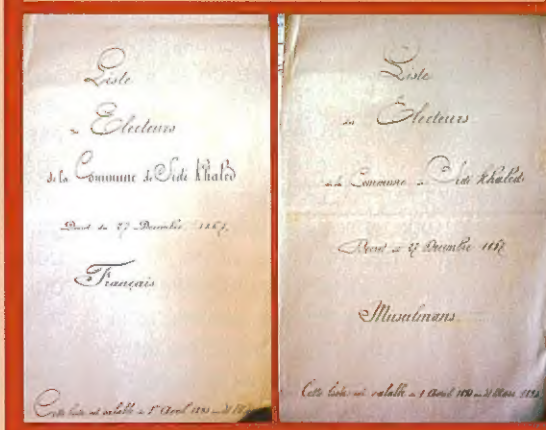 Liste
Electeurs
de la Commune de Sidi Khaled
Décret du 27 Décembre 1867
Français
Cette liste est valable 1er Avril
Liste
des Electeurs
de la Commune de Sidi Khaled
Décret 27 Décembre 1867
Musulmans
Cette liste est valable 1 Avril Mars